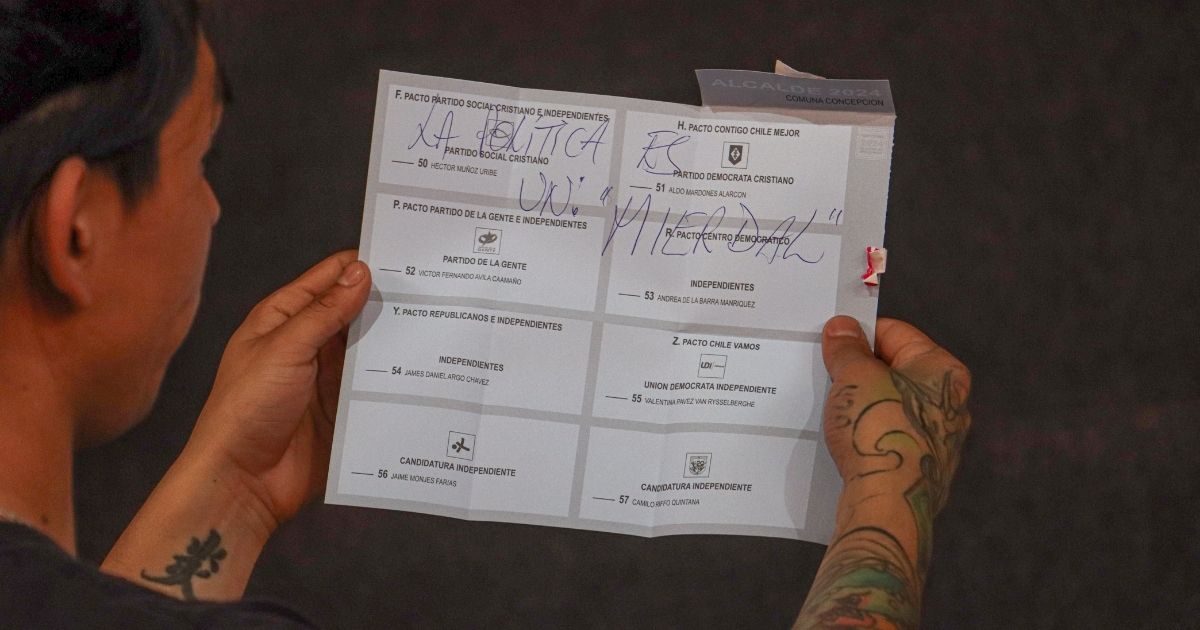 ALCALDE 2024
COMUNA CONCEPCION
LA POLÍTICA ES
UN: "MIERDAL"
F. PACTO PARTIDO SOCIAL CRISTIANO E INDEPENDIENTES
PARTIDO SOCIAL CRISTIANO
50 HECTOR MUÑOZ URIBE
H. PACTO CONTIGO CHILE MEJOR
PARTIDO DEMOCRATA CRISTIANO
51 ALDO MARDONES ALARCON
P. PACTO PARTIDO DE LA GENTE E INDEPENDIENTES
PARTIDO DE LA GENTE
52 VICTOR FERNANDO AVILA CAAMAÑO
R. PACTO CENTRO DEMOCRATICO
INDEPENDIENTES
53 ANDREA DE LA BARRA MANRIQUEZ
Y. PACTO REPUBLICANOS E INDEPENDIENTES
INDEPENDIENTES
54 JAMES DANIEL ARGO CHAVEZ
Z. PACTO CHILE VAMOS
UDI
UNION DEMOCRATA INDEPENDIENTE
55 VALENTINA PAVEZ VAN RYSSELBERGHE
CANDIDATURA INDEPENDIENTE
56 JAIME MONJES FARIAS
CANDIDATURA INDEPENDIENTE
57 CAMILO RIFFO QUINTANA